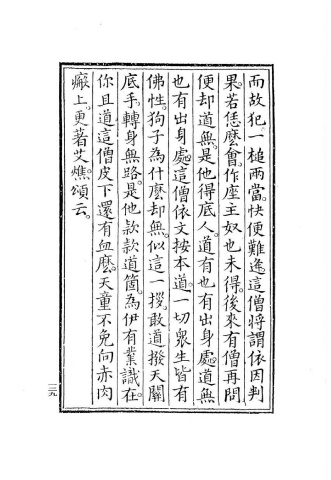 而故犯。一槌兩當。快便難逢。這僧將謂依因判
果。若恁麼會。作座主奴也未得。後來有僧再問。
便却道無。是他得底人。道有也有出身處。道無
也有出身處。這僧依文按本道。一切衆生皆有
佛性。狗子為什麼却無。似這一拶。敢道撥天關
底手。轉身無路。是他款款道箇。為伊有業識在。
你且道這僧皮下還有血麼。天童不免向赤肉
瘢上。更著艾燋。頌云。
一二九